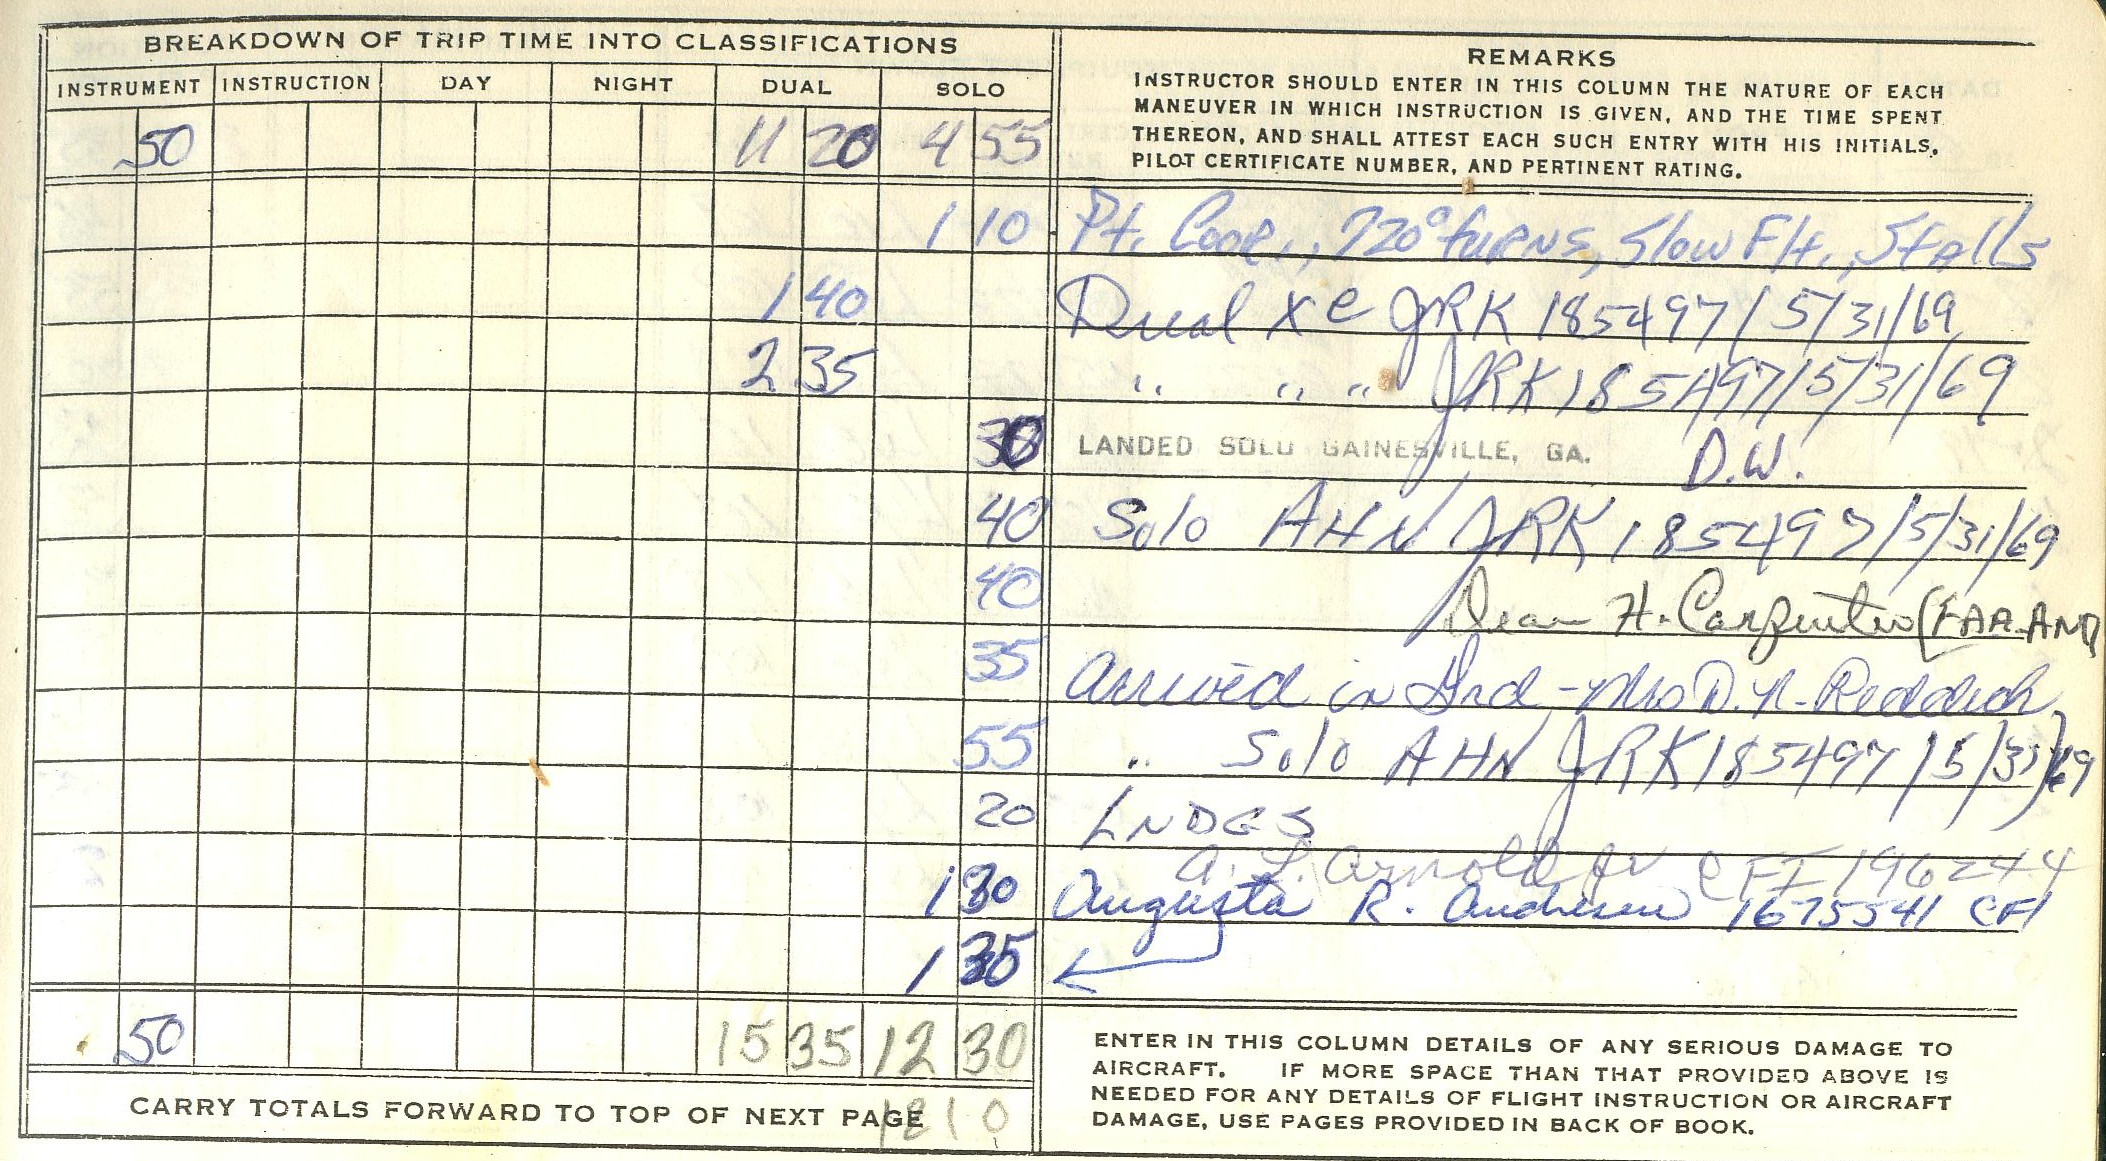 BREAKDOWN OF TRIP TIME INTO CLASSIFICATIONS
INSTRUMENT INSTRUCTION DAY NIGHT DUAL SOLO
50 11 20 4 55
REMARKS
INSTRUCTOR SHOULD ENTER IN THIS COLUMN THE NATURE OF EACH
MANEUVER IN WHICH INSTRUCTION IS GIVEN, AND THE TIME SPENT
THEREON, AND SHALL ATTEST EACH SUCH ENTRY WITH HIS INITIALS,
PILOT CERTIFICATE NUMBER, AND PERTINENT RATING.
1 10 Pt. Coor., 720° turns, Slow Flt., Stalls
1 40 Dual XC JRK 185497/5/31/69
2 35 " " " JRK 185497/5/31/69
30 LANDED SOLO GAINESVILLE, GA. D.W.
40 Solo AHN JRK 185497/5/31/69
40 Dean H. Carpenter (FAA-AND
35 Arrived in Grd - Mrs D. N. Reddick
55 " Solo AHN JRK 185497/5/31/69
20 LNDGS
A. L. Arnold Jr CFI 196244
1 30 Augusta R. 1675541 CFI
1 35
50 15 35 12 30
CARRY TOTALS FORWARD TO TOP OF NEXT PAGE
1210
ENTER IN THIS COLUMN DETAILS OF ANY SERIOUS DAMAGE TO
AIRCRAFT. IF MORE SPACE THAN THAT PROVIDED ABOVE IS
NEEDED FOR ANY DETAILS OF FLIGHT INSTRUCTION OR AIRCRAFT
DAMAGE, USE PAGES PROVIDED IN BACK OF BOOK.